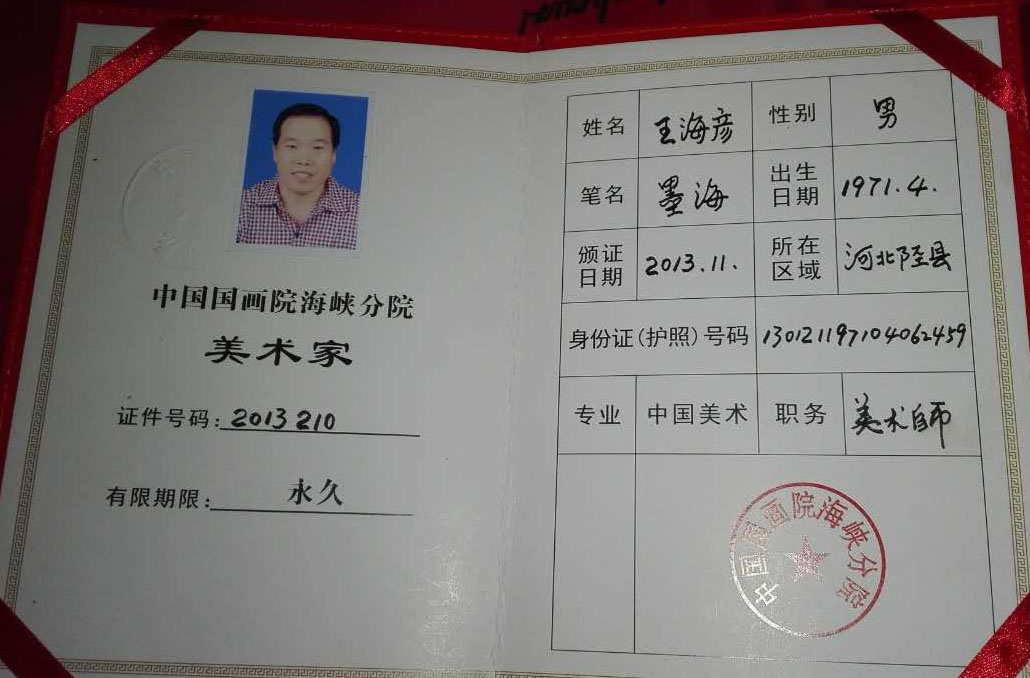 中国国画院海峡分院
美术家
证件号码：2013210
有限期限：永久
姓名 王海彦 性别 男
笔名 墨海 出生日期 1971.4.
颁证日期 2013.11. 所在区域 河北陉县
身份证(护照)号码 130121197104062459
专业 中国美术 职务 美术师
中国国画院海峡分院